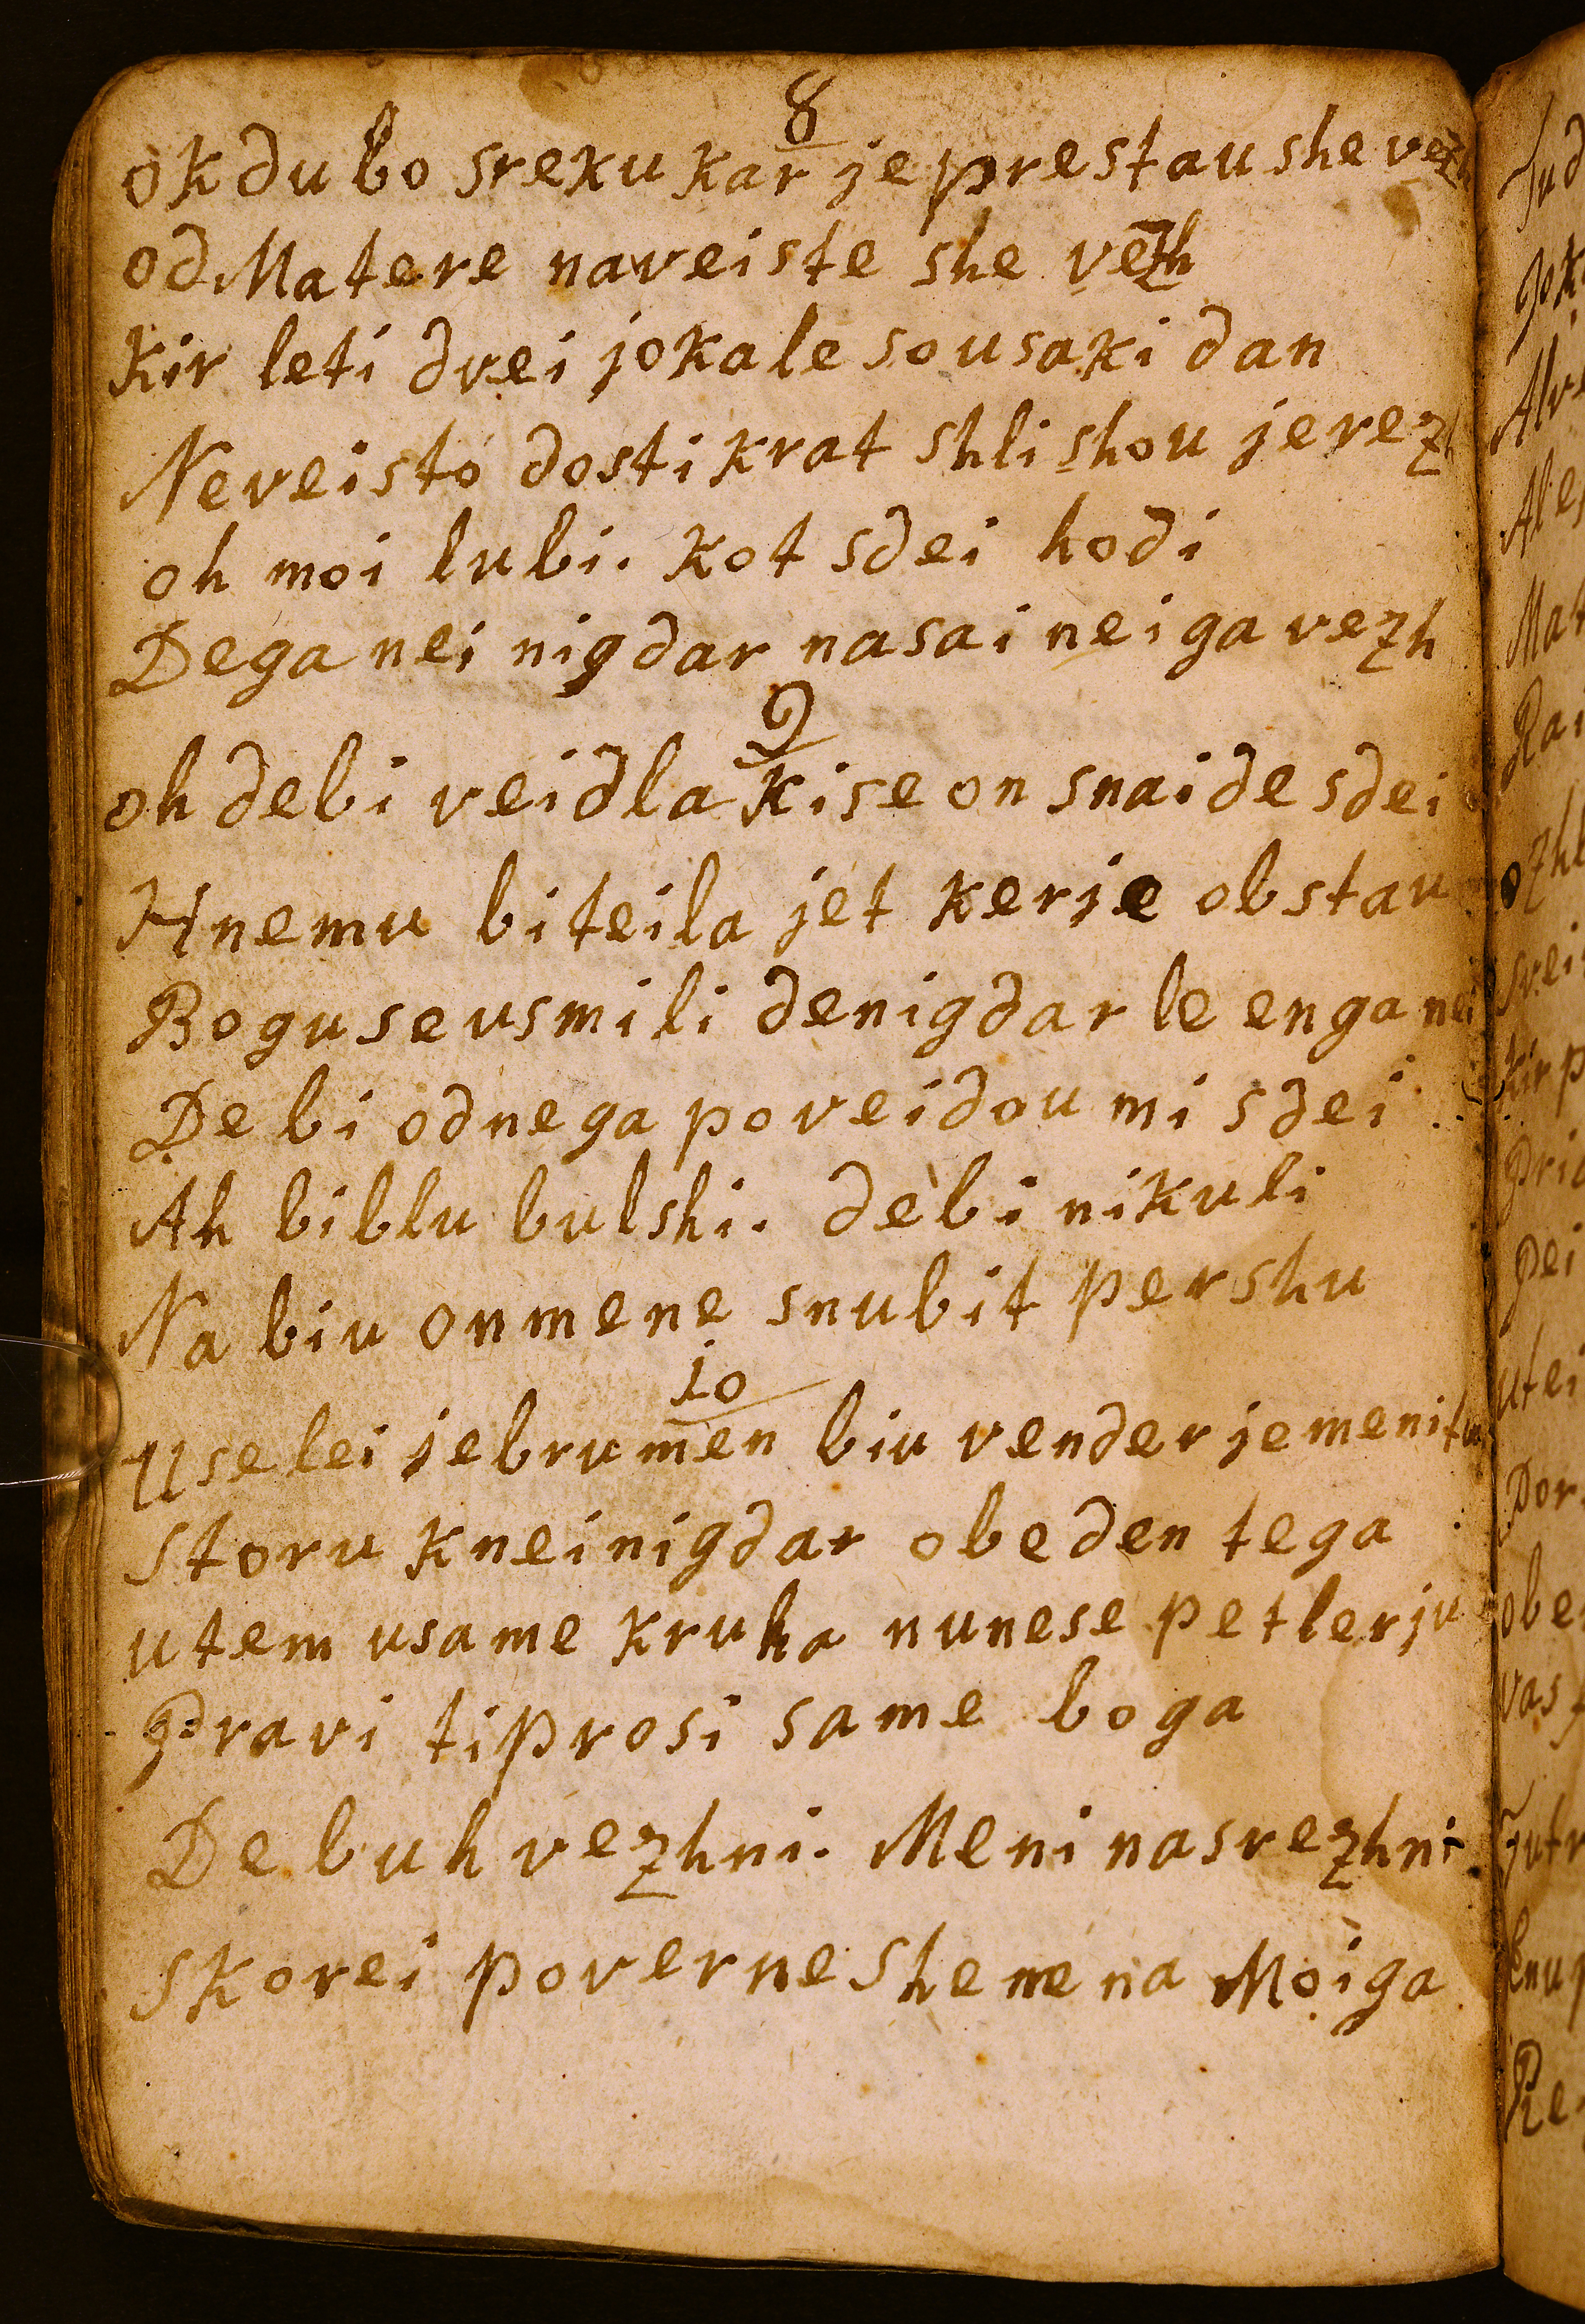 8
ok du bo sreku kar je prestau she vezh
od Matere naveiste she vezh
Kir leti drei jokale so usaki dan
Neveisto dosti krat shlishou je rezh
oh moi lubi. kot sdei hodi
Dega nei nigdar nasai nei ga vezh
9
oh debi veidla kise on snaide sdei
Hnemu bi teila jet kerje obstau
Bogu se usmili de nigdar le enga nei
De bi odnega poveidou mi sdei
Ah bi blu bulshi. debi nikuli
Na biu on mene snubit pershu
10
Use lei je brumen biu vender je meni tu
storu knei nigdar obeden tega
utem usame kruha nu nese petlerju
Pravi ti prosi same boga
De buh vezhni. Meni nasrezhni
skorei poverne shene na Moiga